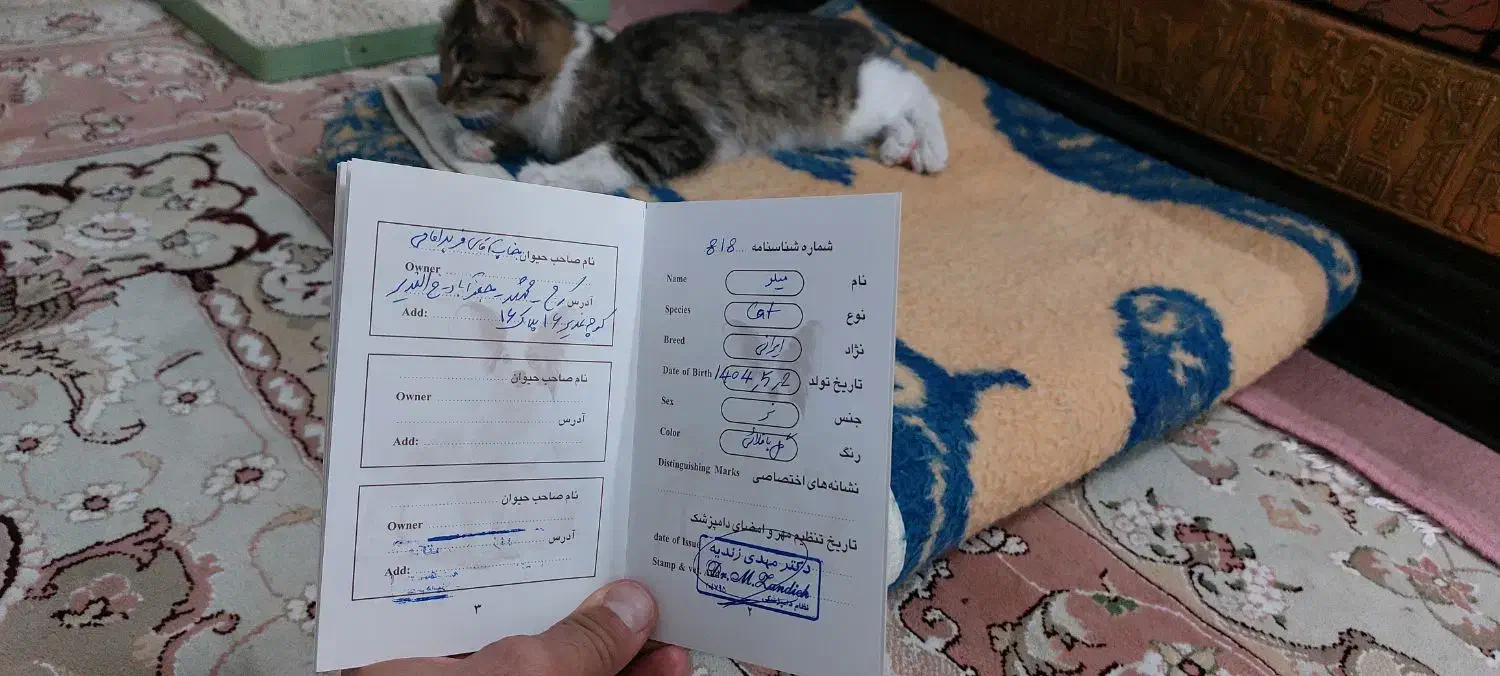 نام صاحب حیوان جناب آقای فرید امامی
Owner
آدرس کرج -
Add:
کوچه غدیر ۱۶ پلاک ۱۶
نام صاحب حیوان
Owner
آدرس
Add:
نام صاحب حیوان
Owner
آدرس
Add:
۳
شماره شناسنامه 818
Name میلو نام
Species Cat نوع
Breed ایرانی نژاد
Date of Birth 1404, 5, 2 تاریخ تولد
Sex نر جنس
Color گل باقلائی رنگ
Distinguishing Marks نشانه‌های اختصاصی
تاریخ تنظیم مهر و امضای دامپزشک
date of Issue
Stamp &
دکتر مهدی زندیه
Dr. M. Zandieh
نظام دامپزشکی
۲